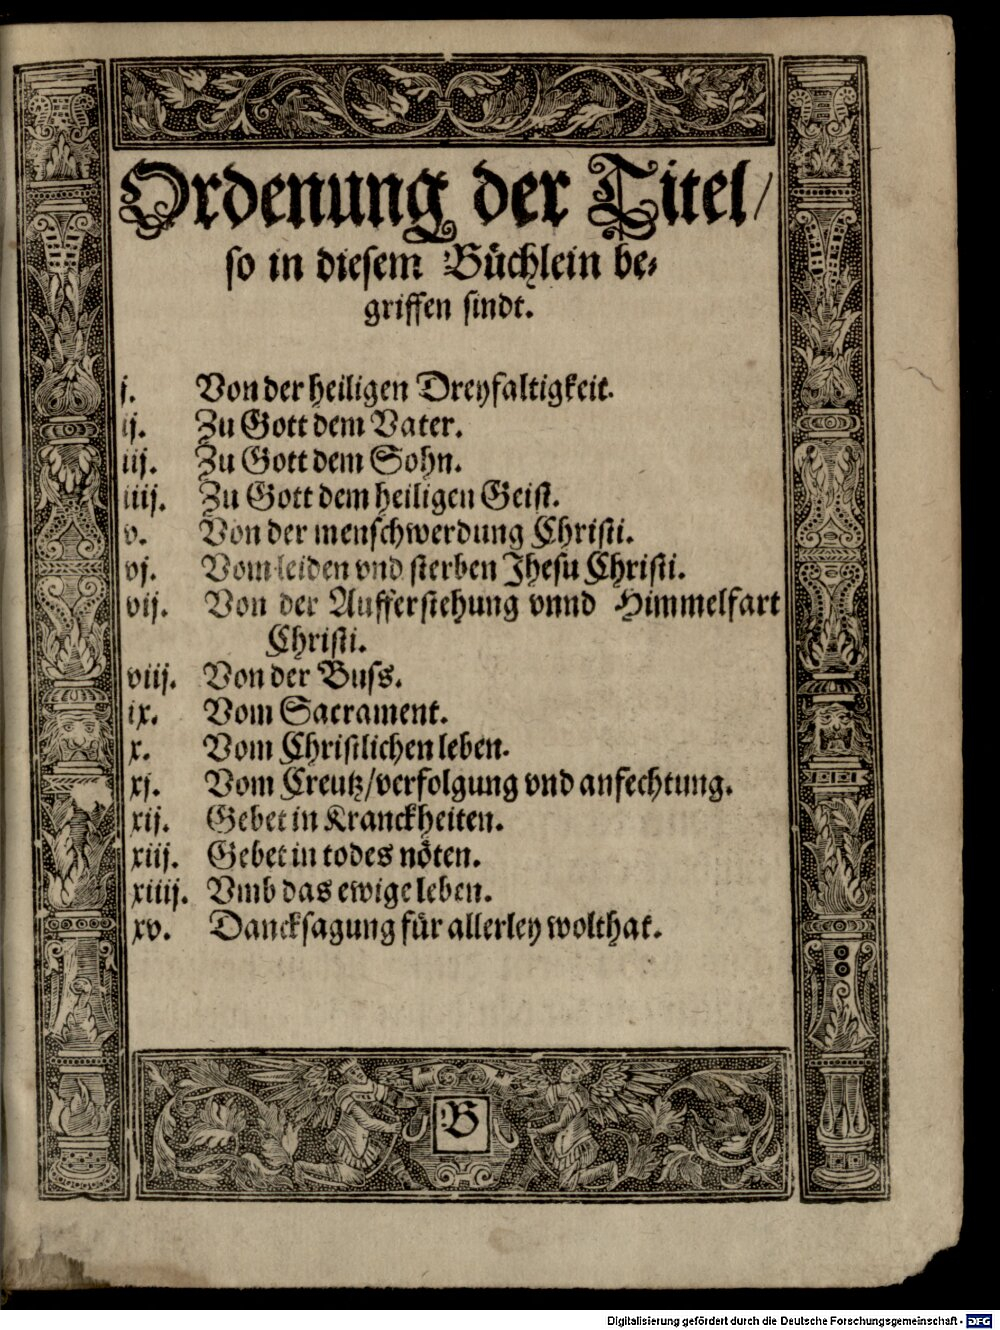 Ordenung der Titel/
so in diesem Büchlein be-
griffen sindt.
j. Von der heiligen Dreyfaltigkeit.
ij. Zu Gott dem Vater.
iij. Zu Gott dem Sohn.
iiij. Zu Gott dem heiligen Geist.
v. Von der menschwerdung Christi.
vj. Vom leiden vnd sterben Jhesu Christi.
vij. Von der Aufferstehung vnnd Himmelfart
Christi.
viij. Von der Buss.
ix. Vom Sacrament.
x. Vom Christlichen leben.
xj. Vom Creutz/verfolgung vnd anfechtung.
xij. Gebet in Kranckheiten.
xiij. Gebet in todes nöten.
xiiij. Vmb das ewige leben.
xv. Dancksagung für allerley wolthat.
B
Digitalisierung gefördert durch die Deutsche Forschungsgemeinschaft - DFG